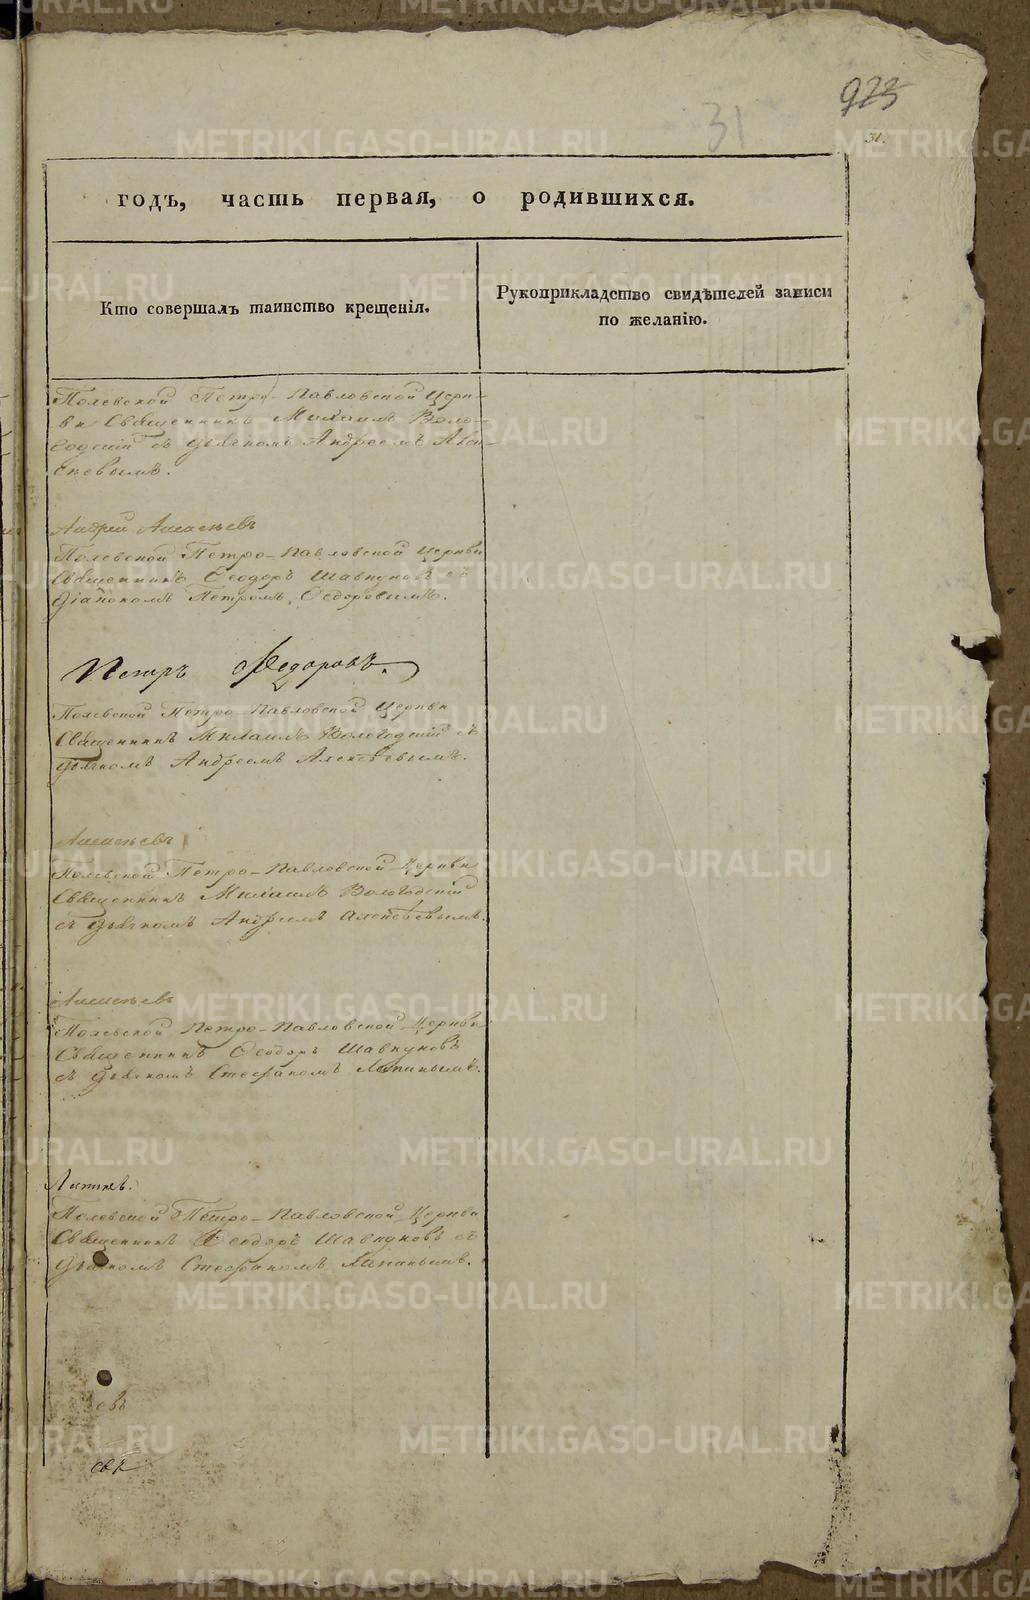 923
31
31.
годъ, часть первая, о родившихся.
Кто совершалъ таинство крещенія.
Рукоприкладство свидѣтелей записи
по желанію.
Полевской Петро-Павловской Церк-
ви Священникъ Михаилъ Воло-
годскій съ дьячкомъ Андреемъ Алек-
сѣевымъ.
Андрей Алексѣевъ
Полевской Петро-Павловской Церкви
Священникъ Ѳеодоръ Шавкуновъ съ
Діакономъ Петромъ Ѳедоровымъ.
Петръ Ѳедоровъ.
Полевской Петро-Павловской Церкви
Священникъ Михаилъ Вологодскій съ
дьячкомъ Андреемъ Алексѣевымъ.
Алексѣевъ
Полевской Петро-Павловской Церкви
Священникъ Михаилъ Вологодскій
съ дьячкомъ Андреемъ Алексѣевымъ.
Алексѣевъ
Полевской Петро-Павловской Церкви
Священникъ Ѳеодоръ Шавкуновъ
съ дьячкомъ Стефаномъ Ляпинымъ.
Полевской Петро-Павловской Церкви
Священникъ Ѳеодоръ Шавкуновъ съ
дьячкомъ Стефаномъ Ляпинымъ.
евъ
METRIKI.GASO-URAL.RU